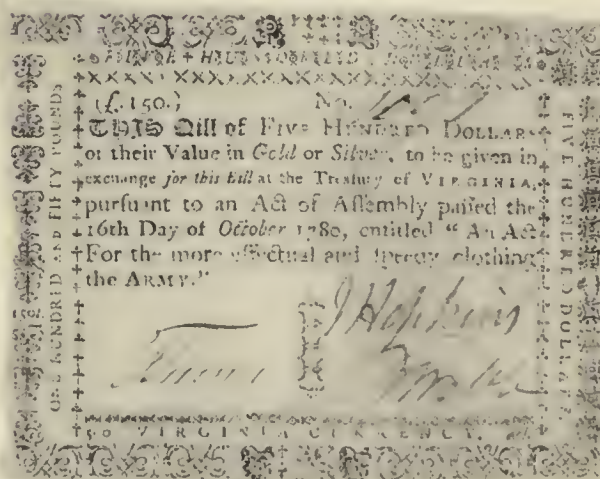 (£. 150.) No.
THIS Bill of FIVE HUNDRED DOLLARS
or their Value in Gold or Silver, to be given in
exchange for this Bill at the Treasury of VIRGINIA,
purſuant to an Act of Aſſembly paſſed the
16th Day of October 1780, entitled “ An Act
For the more effectual and ſpeedy clothing
the ARMY.”
J Hopkins
VIRGINIA CURRENCY.
ONE HUNDRED AND FIFTY POUNDS
FIVE HUNDRED DOLLARS